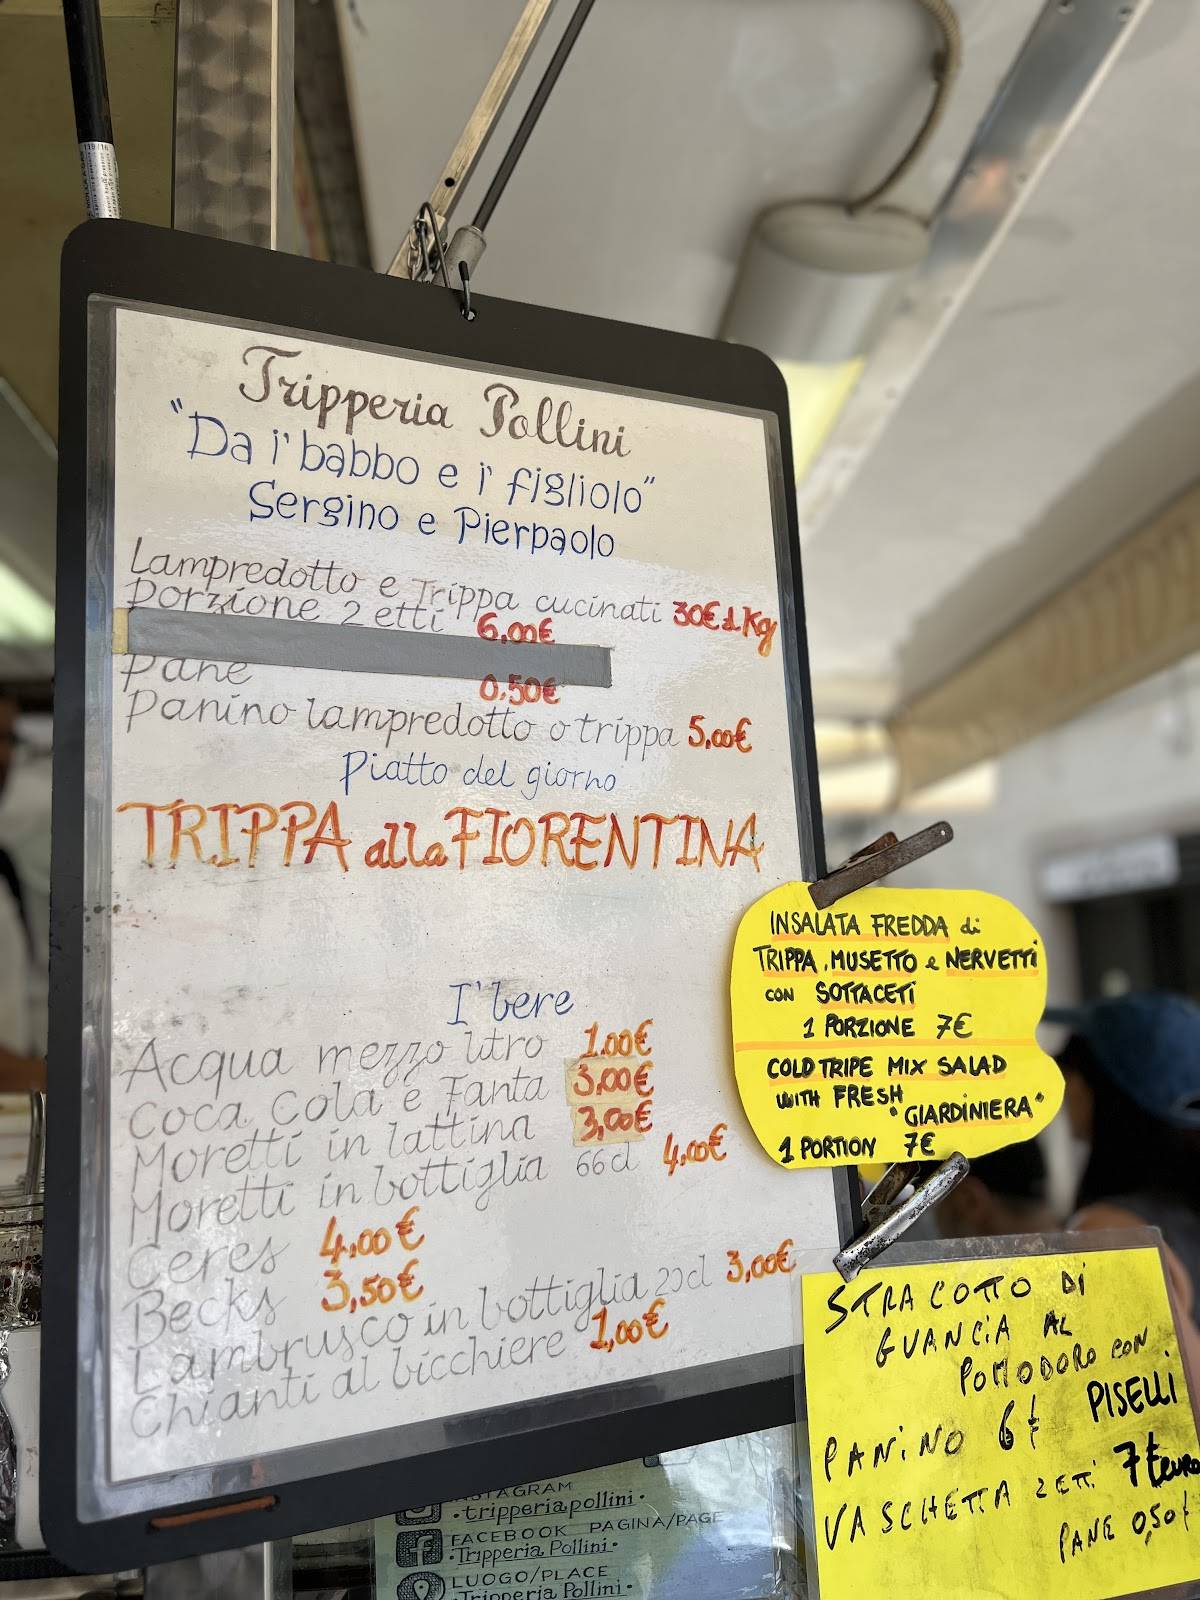 Tripperia Pollini
"Da i' babbo e i' figliolo"
Sergino e Pierpaolo
Lampredotto e Trippa cucinati 30€ al Kg
Porzione 2 etti 6,00€
Pane 0,50€
Panino lampredotto o trippa 5,00€
Piatto del giorno
TRIPPA alla FIORENTINA
I' bere
Acqua mezzo litro 1,00€
Coca Cola e Fanta 3,00€
Moretti in lattina 3,00€
Moretti in bottiglia 66cl 4,00€
Ceres 4,00€
Becks 3,50€
Lambrusco in bottiglia 20cl 3,00€
Chianti al bicchiere 1,00€
INSALATA FREDDA di
TRIPPA, MUSETTO e NERVETTI
CON SOTTACETI
1 PORZIONE 7€
COLD TRIPE MIX SALAD
WITH FRESH
"GIARDINIERA"
1 PORTION 7€
STRACOTTO DI
GUANCIA AL
POMODORO CON
PISELLI
PANINO 6€
VASCHETTA 2 ETTI 7€ EURO
PANE 0,50€
INSTAGRAM
·tripperiapollini·
FACEBOOK PAGINA/PAGE
·Tripperia Pollini·
LUOGO/PLACE
·Tripperia Pollini·